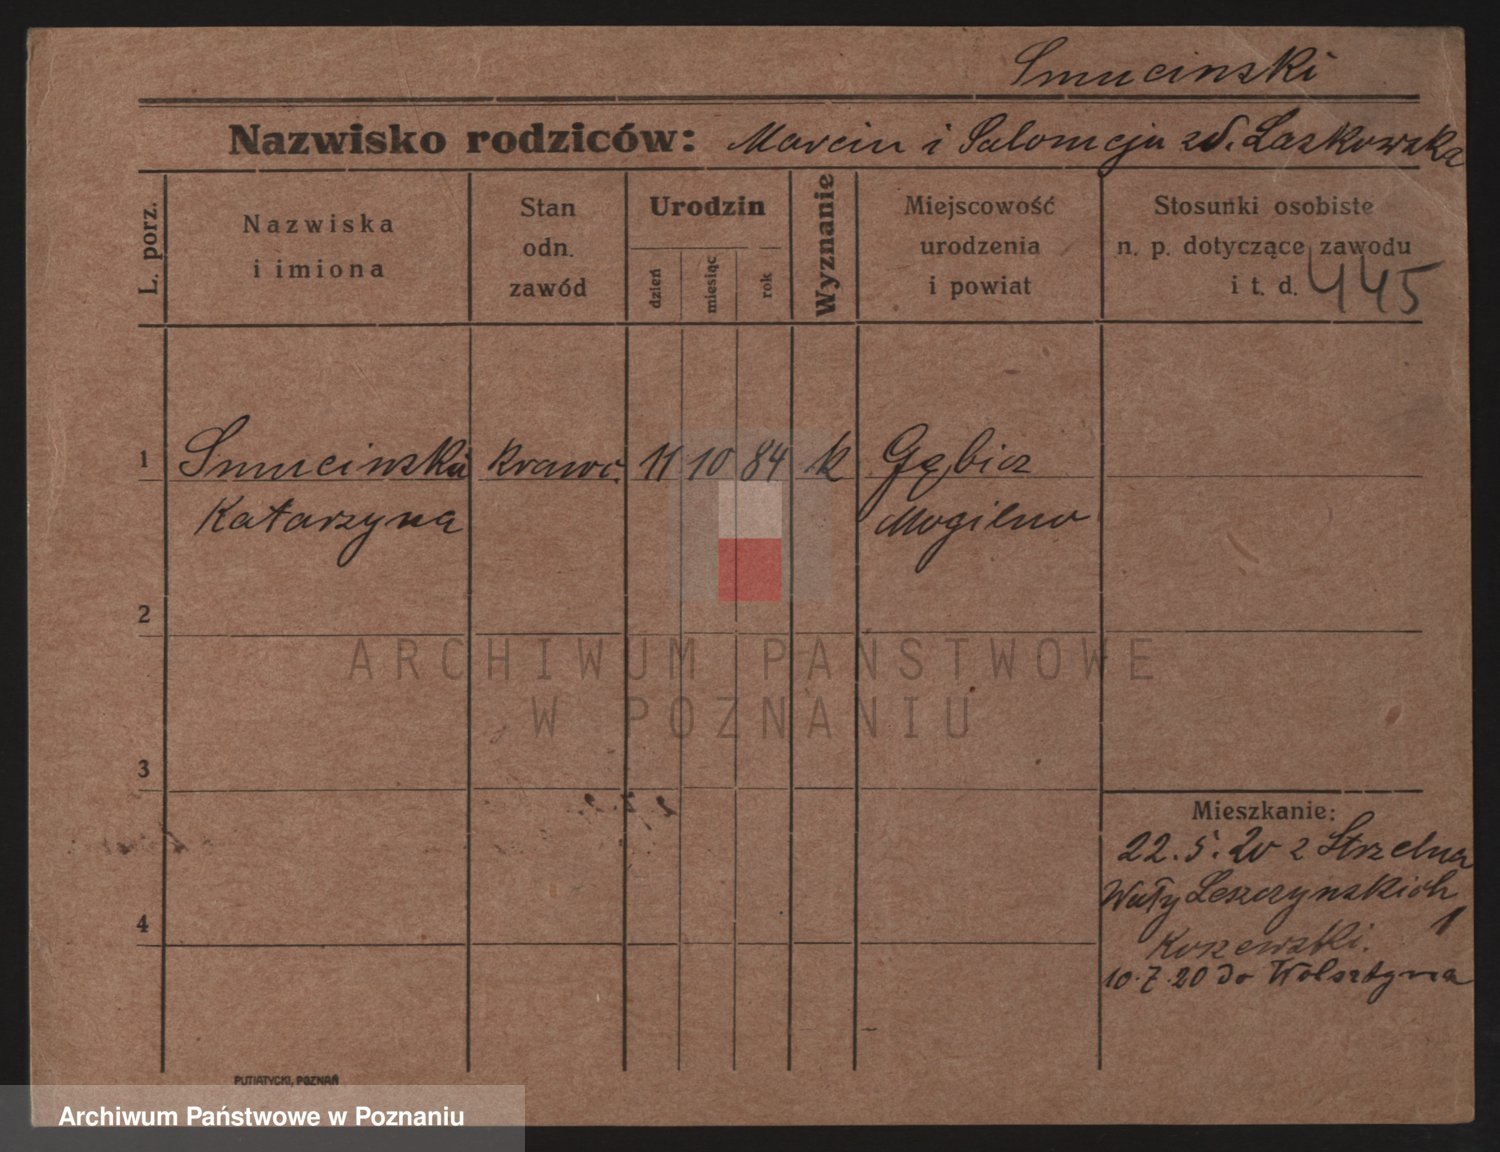 Smucinski
Nazwisko rodziców: Marcin i Salomeja zd. Laskowska
L. porz.
Nazwiska
i imiona
Stan
odn.
zawód
Urodzin
dzień
miesiąc
rok
Wyznanie
Miejscowość
urodzenia
i powiat
Stosunki osobiste
n. p. dotyczące zawodu
i t. d. 445
1 Smucinska krawc. 11 10 84 k Gębice
Katarzyna Mogilno
2
ARCHIWUM PAŃSTWOWE
W POZNANIU
3
Mieszkanie:
22.5.20 z Strzelna
Wały Leszczynskich 1
4
10.7.20 do Wolsztyna
PUTIATYCKI, POZNAŃ
Archiwum Państwowe w Poznaniu